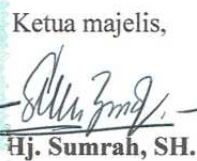 Ketua majelis,
Hj. Sumrah, SH.